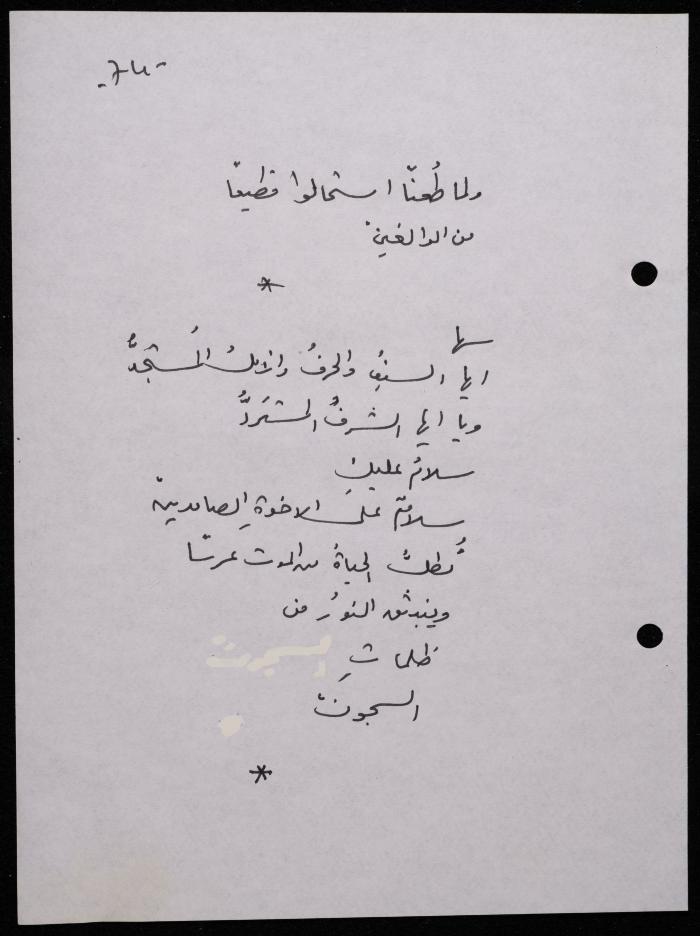 ولما طُعنّا استحالوا قطيعًا
من الوالغين
*
سها
ايها السنبُ والحرفُ والأيكُ المُستَجدُّ
ويا ايها الشرفُ المشرَدُّ
سلامٌ عليكِ
سلامٌ على الاخوةِ الصامدين
تُطلُّ الحياةُ من الموت عرسًا
وينبثق النورُ من
ظلماتِ
السجون
*